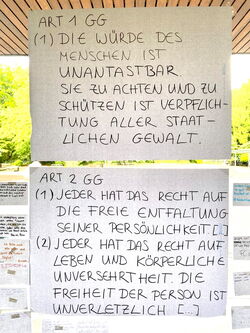 ART 1 GG
(1) DIE WÜRDE DES
MENSCHEN IST
UNANTASTBAR.
SIE ZU ACHTEN UND ZU
SCHÜTZEN IST VERPFLICH-
TUNG ALLER STAAT-
LICHEN GEWALT.
ART 2 GG
(1) JEDER HAT DAS RECHT AUF
DIE FREIE ENTFALTUNG
SEINER PERSÖNLICHKEIT [..]
(2) JEDER HAT DAS RECHT AUF
LEBEN UND KÖRPERLICHE
UNVERSEHRTHEIT. DIE
FREIHEIT DER PERSON IST
UNVERLETZLICH [...]